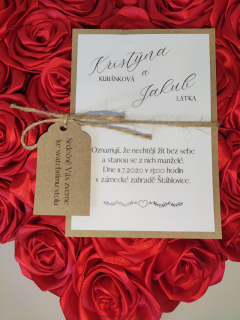 Kristýna
KUBÁNKOVÁ
a
Jakub
LATKA
Oznamují, že nechtějí žít bez sebe
a stanou se z nich manželé.
Dne 11.7.2020 v 13:00 hodin
v zámecké zahradě Štáblovice.
Srdečně Vás zveme
ke svatebnímu stolu